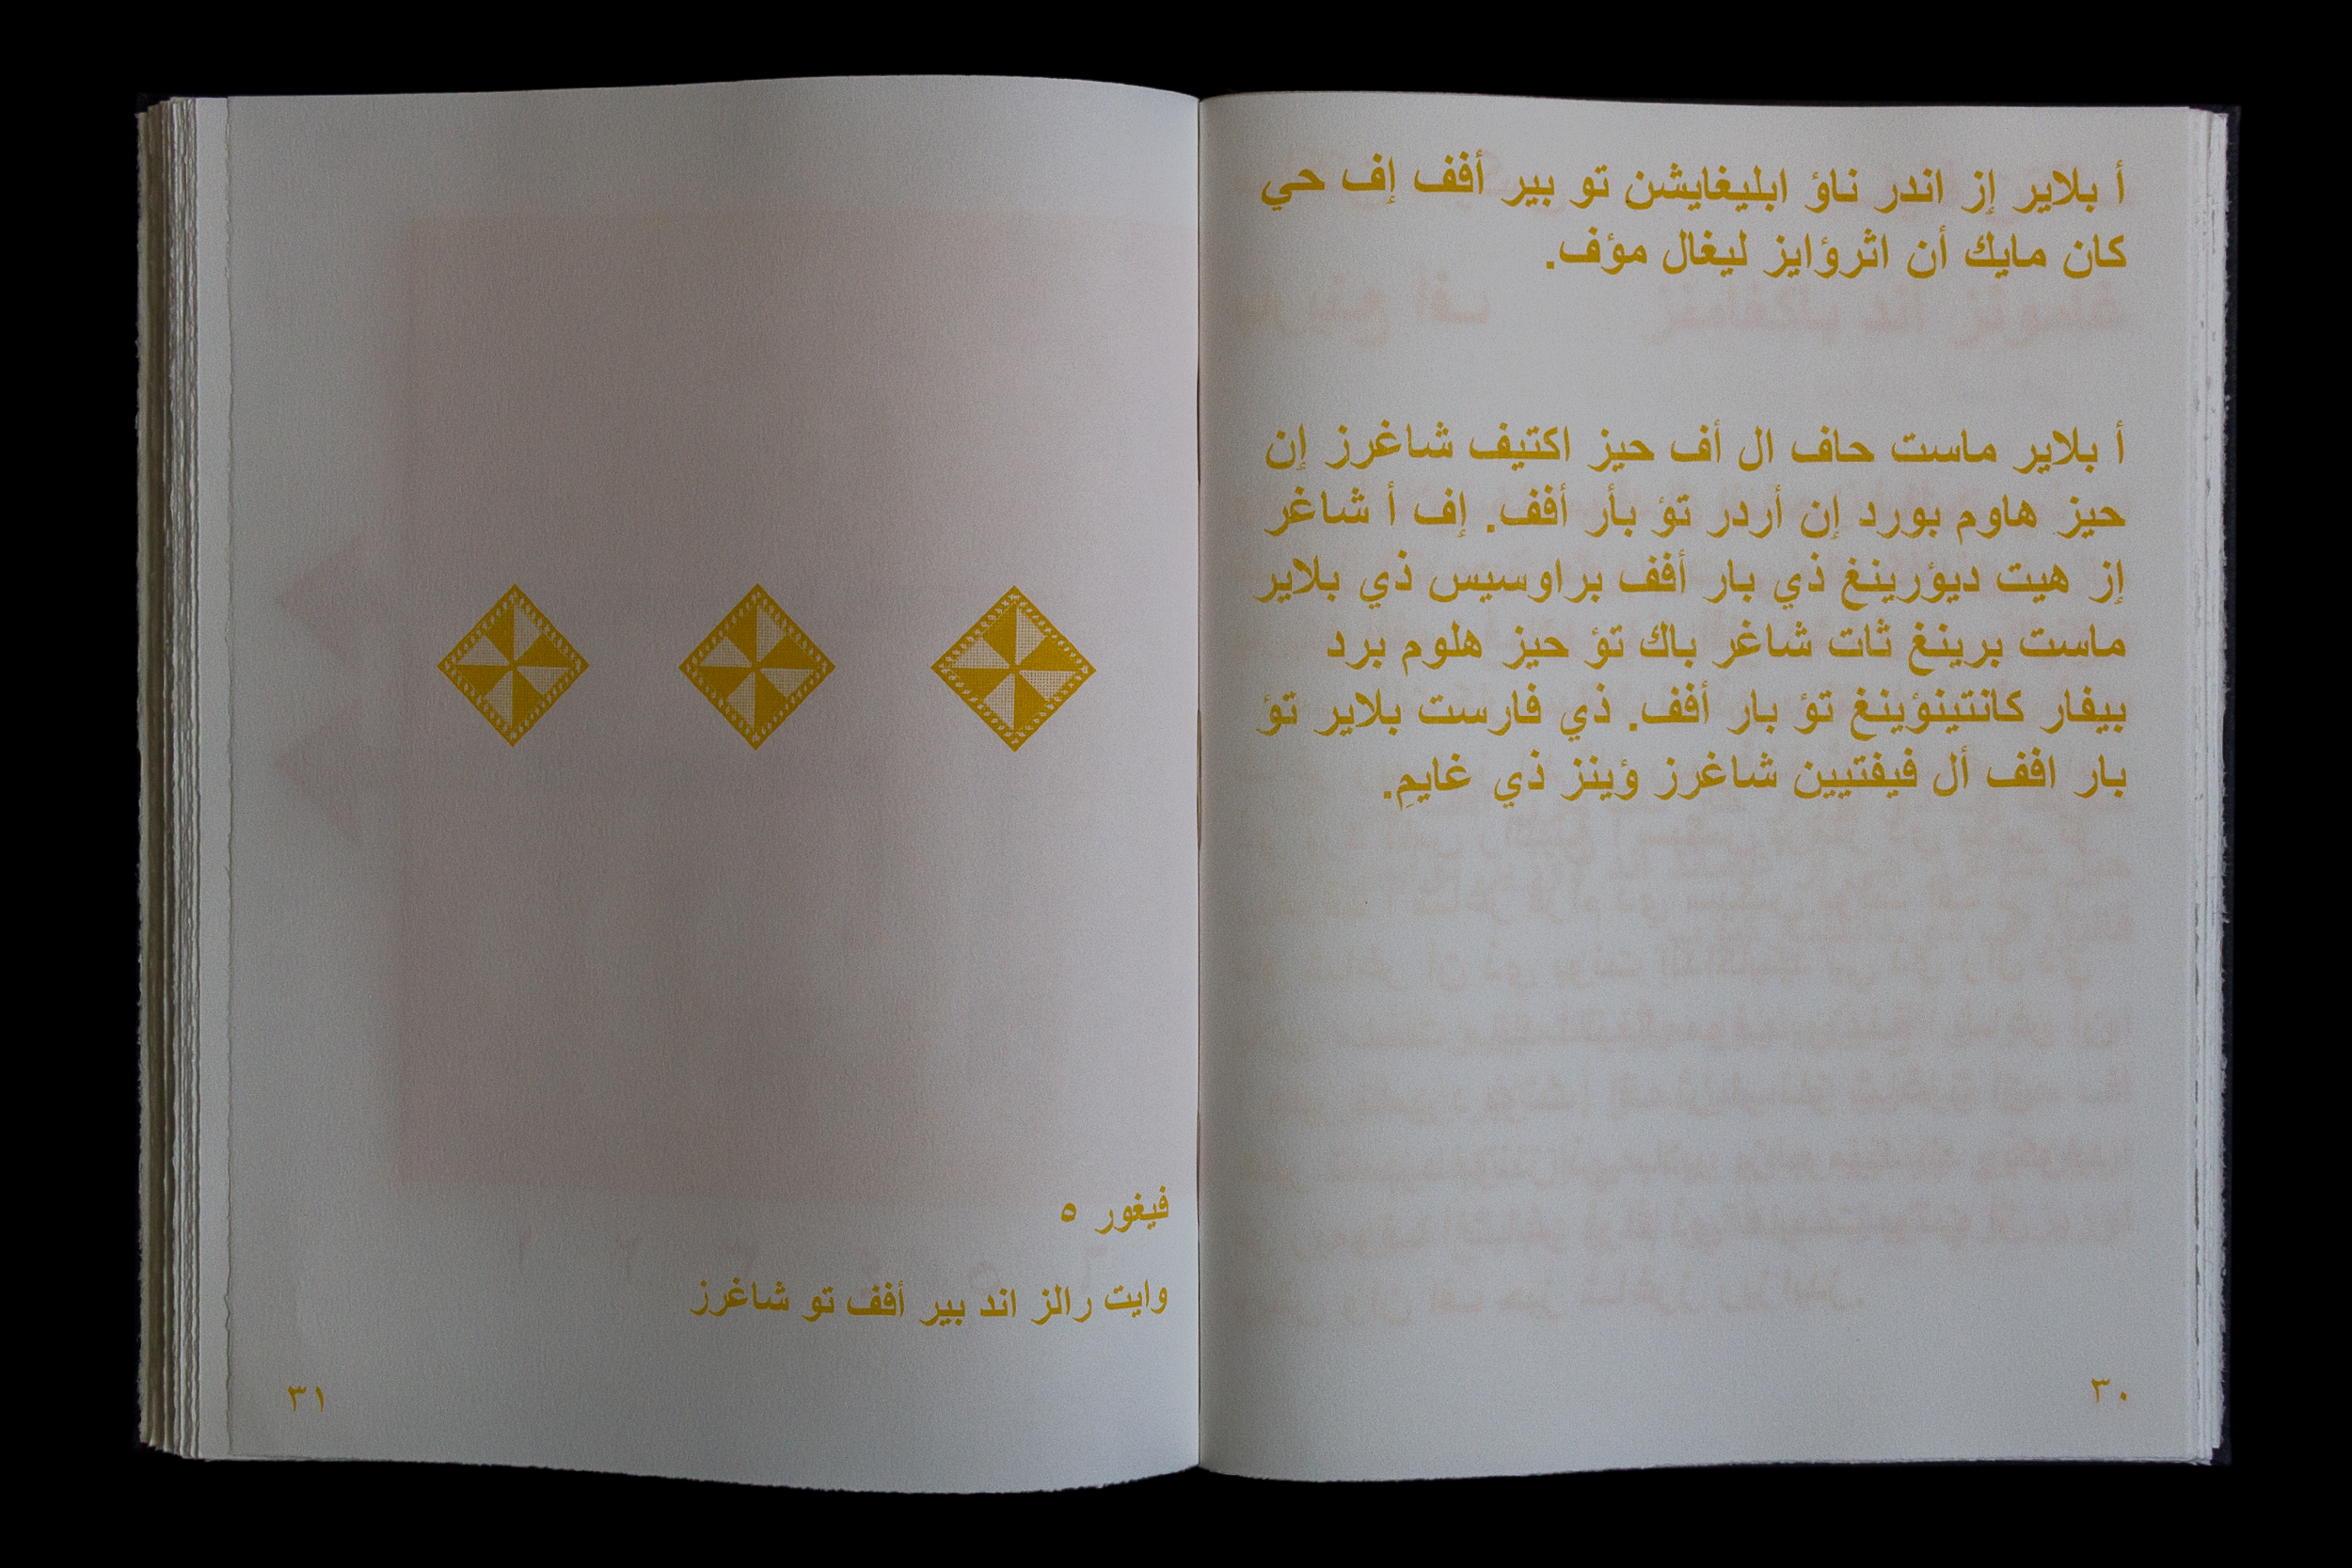 أ بلاير إز اندر ناؤ ابليغايشن تو بير أفف إف حي
كان مايك أن اثرؤايز ليغال مؤف.
أ بلاير ماست حاف ال أف حيز اكتيف شاغرز إن
حيز هاوم بورد إن أردر تؤ بأر أفف. إف أ شاغر
إز هيت ديؤرينغ ذي بار أفف براوسيس ذي بلاير
ماست برينغ ثات شاغر باك تؤ حيز هلوم برد
بيفار كانتينؤينغ تؤ بار أفف. ذي فارست بلاير تؤ
بار افف أل فيفتيين شاغرز ؤينز ذي غايمِ.
٣٠
فيغور ٥
وايت رالز اند بير أفف تو شاغرز
٣١